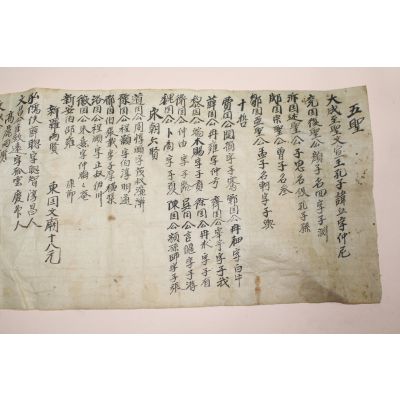 五聖
大成至聖文宣王孔子諱丘字仲尼
兗國復聖公顔子名回字子淵
沂國述聖公子思名伋孔子孫
郕國宗聖公曾子名參
鄒國亞聖公孟子名軻字子輿
十哲
費公閔損字子騫 鄆公冉耕字白牛
薛公冉雍字仲弓 齊公宰予字子我
黎公端木賜字子貢 徐公冉求字子有
衛公仲由字子路 吳公言偃字子游
魏公卜商字子夏 陳國公顓孫師字子張
宋朝六賢
道國公周惇頤字茂叔濂溪
豫國公程顥字伯淳明道
郿國伯張載字子厚橫渠
洛國公程頤字正叔伊川
徽國公朱熹字仲晦
新安伯邵雍 康節
新羅兩賢 東國文廟十八元
弘儒侯薛聰字聰智淳昌人
文昌侯崔致遠字孤雲慶州人
高麗兩賢